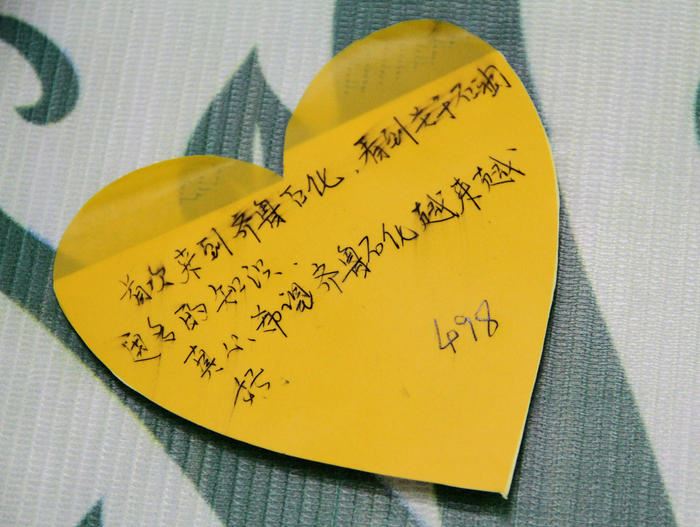 首次来到齐鲁石化、看到关于石油
更多的知识、
真心希望齐鲁石化越来越
好.
498